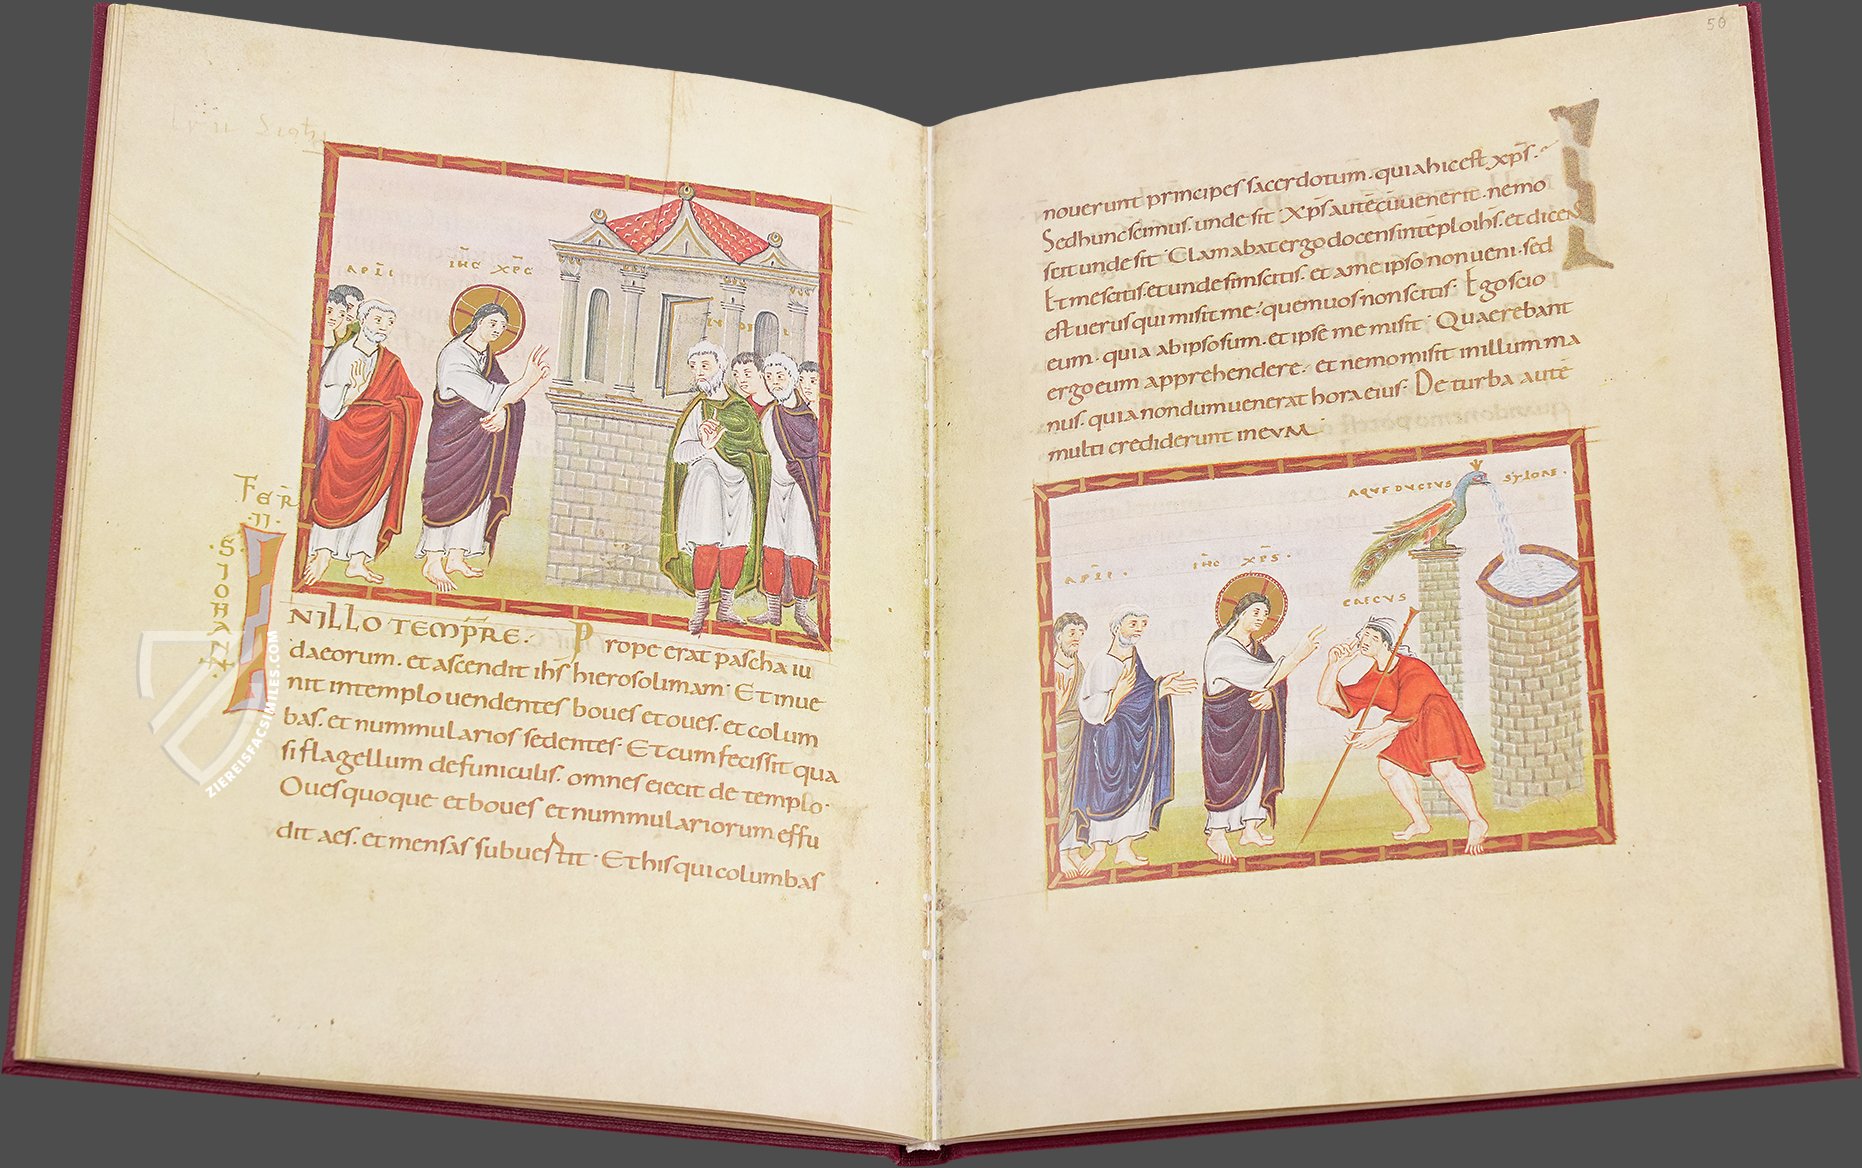 APLI
IHC XPC
FER
·II·
·S·
IOHANN·
INILLO TEMPRE. Prope erat pascha iu
daeorum. et ascendit ihs hierosolimam. Et inue
nit intemplo uendentes boues et oues. et colum
bas. et nummularios sedentes. Et cum fecissit qua
si flagellum de funiculis. omnes eiecit de templo.
Oues quoque et boues et nummulariorum effu
dit aes. et mensas subuertit. Et his qui columbas
ZIEREISFACSIMILES.COM
50
nouerunt principes sacerdotum. quia hic est xps.
Sed hunc scimus. unde sit. Xps autē cū uenerit. nemo
scit unde sit. Clamabat ergo docens in tēplo ihs. et dicens
Et me scitis. et unde sim scitis. et a me ipso non ueni. sed
est uerus qui misit me. quem uos non scitis. Ego scio
eum. quia ab ipso sum. et ipse me misit. Quaerebant
ergo eum apprehendere. et nemo misit in illum ma
nus. quia nondum uenerat hora eius. De turba autē
multi crediderunt in eum
AQUEDUCTUS SYLOAE.
APLI.
IHC XPS.
CAECUS